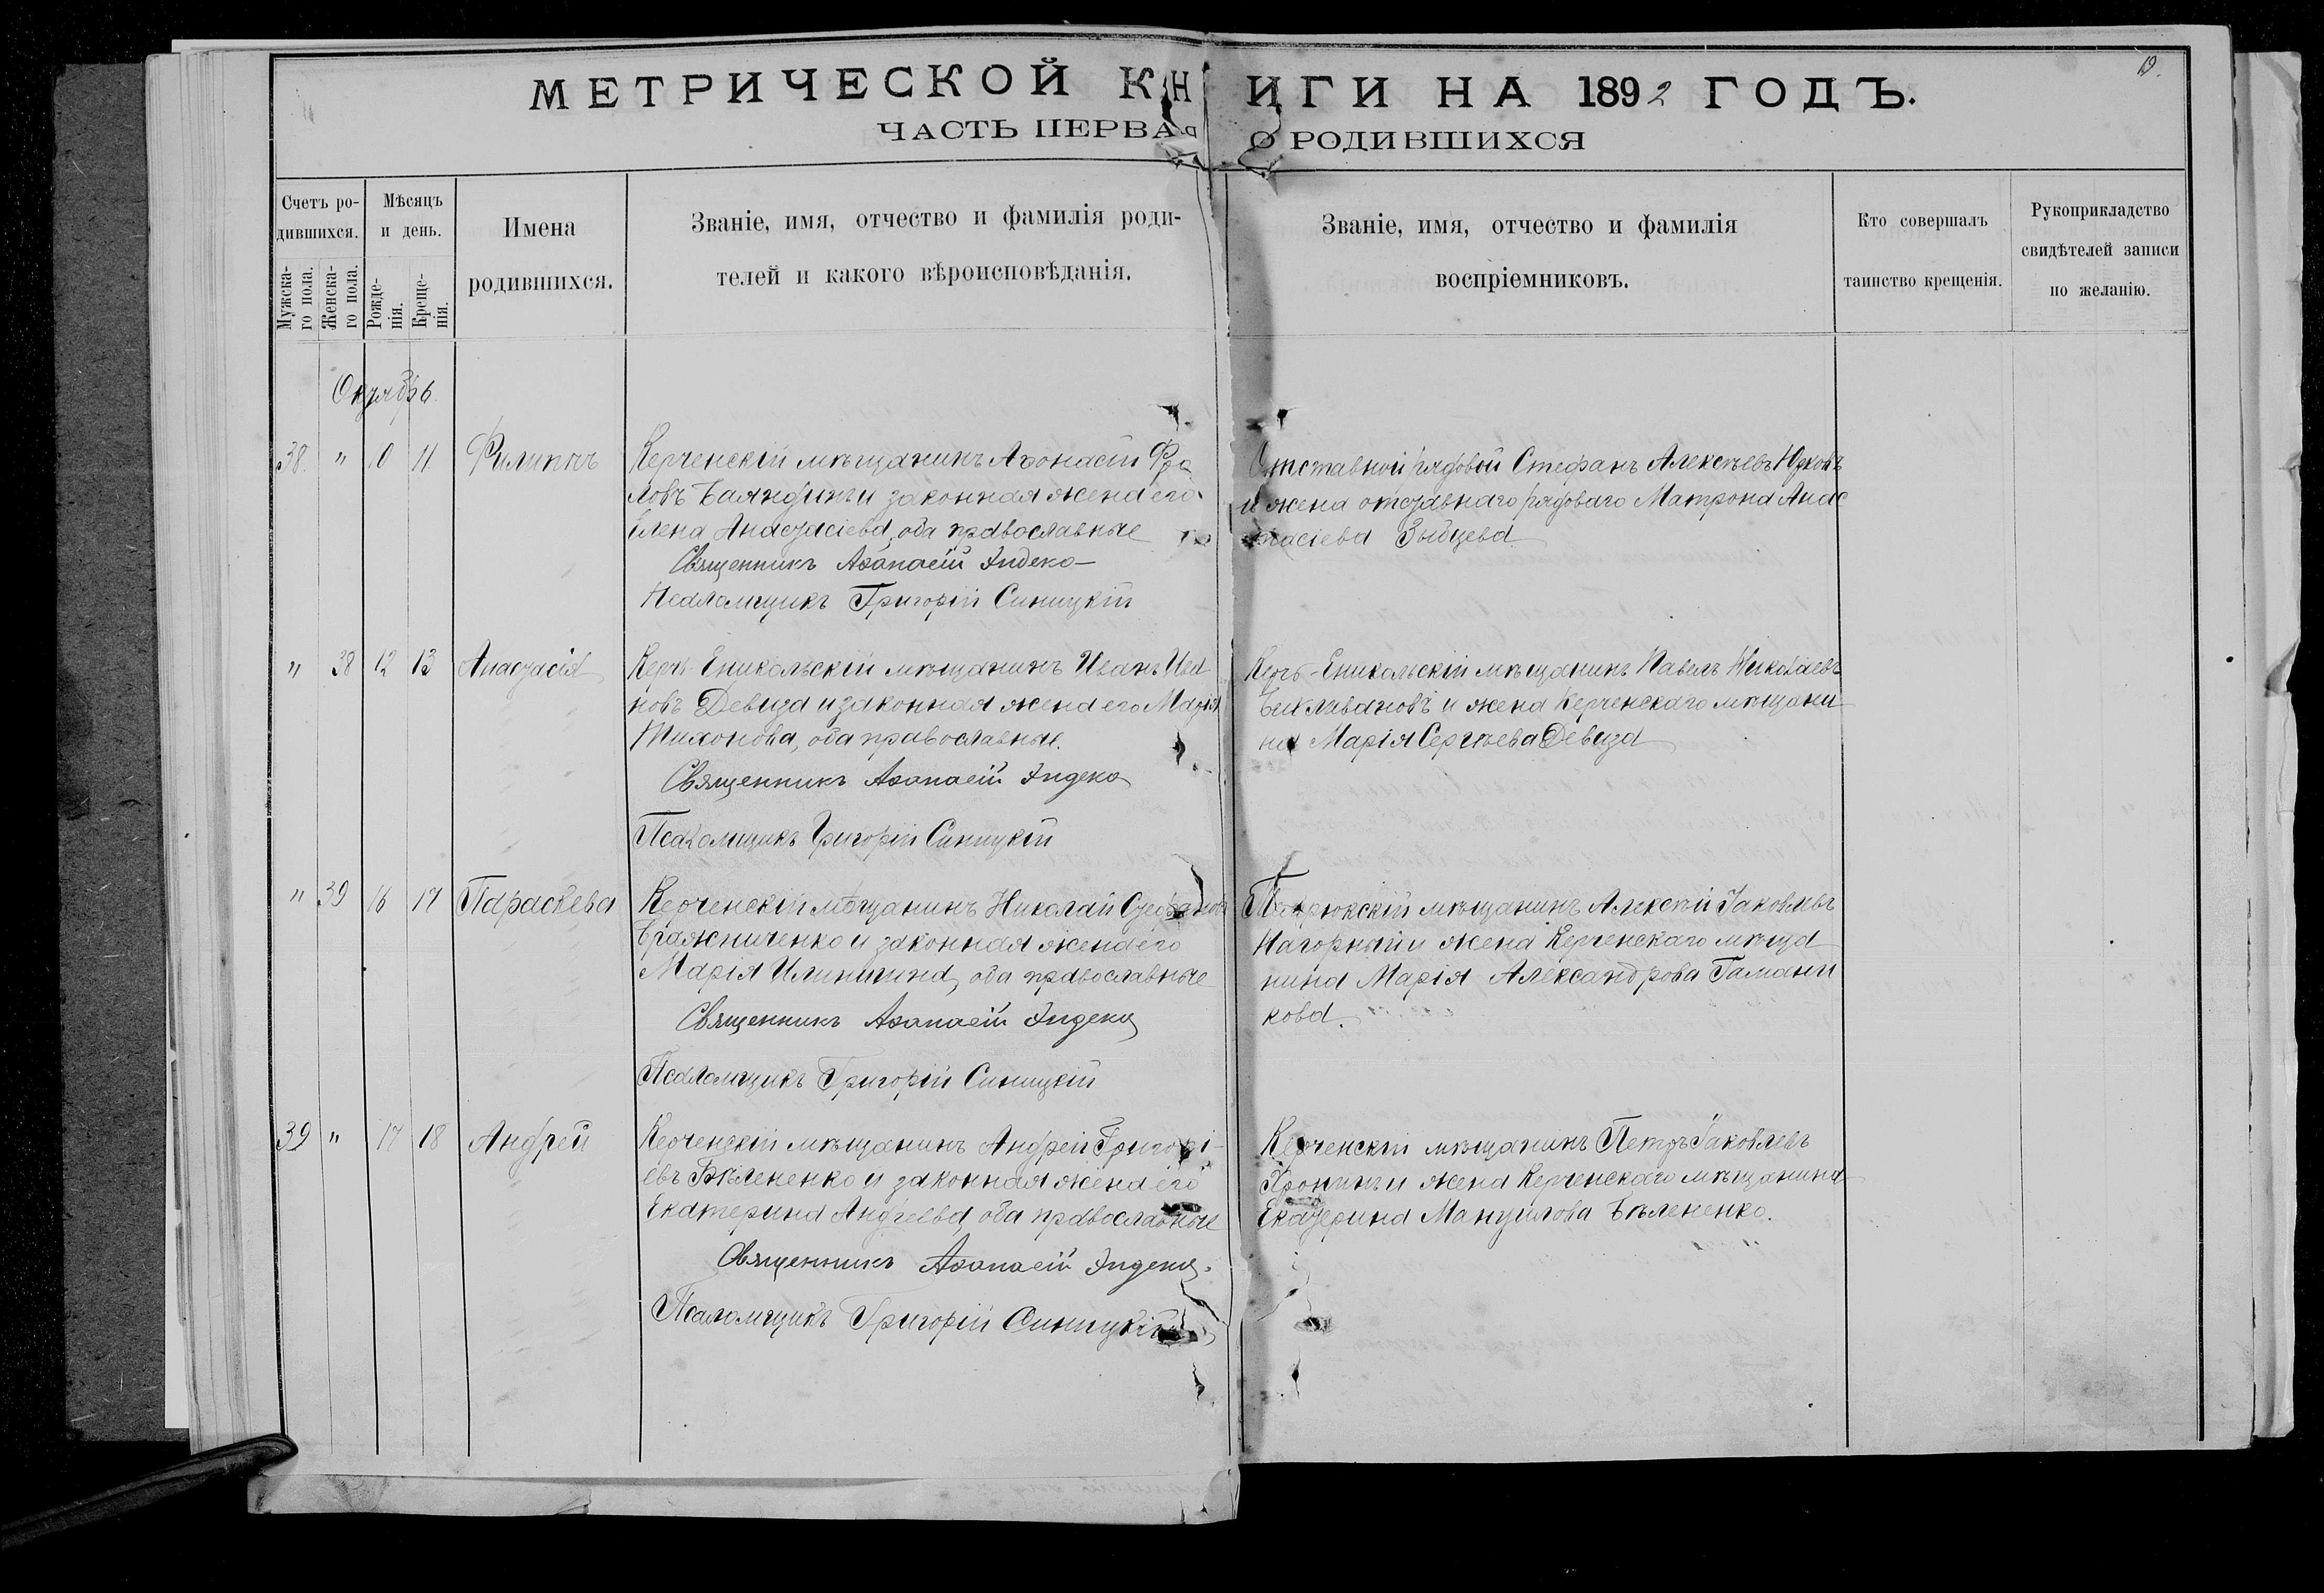 МЕТРИЧЕСКОЙ КНИГИ НА 1892 ГОДЪ.
19.
ЧАСТЬ ПЕРВАЯ О РОДИВШИХСЯ
Счетъ родившихся.
Мужскаго пола.
Женскаго пола.
Мѣсяцъ и день.
Рожденія.
Крещенія.
Имена
родившихся.
Званіе, имя, отчество и фамилія роди-
телей и какого вѣроисповѣданія.
Званіе, имя, отчество и фамилія
воспріемниковъ.
Кто совершалъ
таинство крещенія.
Рукоприкладство
свидѣтелей записи
по желанію.
Октябрь
38. " 10 11 Филиппъ
Керченскій мѣщанинъ Аѳонасій Фро
ловъ Баяндинъ и законная жена его
Елена Анастасіева, оба православные
Священникъ Аѳанасій
Псаломщикъ Григорій Синицкій
Отставной рядовой Стефанъ Алексѣевъ Юдковъ
и жена отставнаго рядоваго Матрона Анас
тасіева Зыбцева
" 38 12 13 Анастасія
Керчь-Еникольскій мѣщанинъ Иванъ Ива
новъ Девиза и законная жена его Марія
Тихонова, оба православные.
Священникъ Аѳанасій
Псаломщикъ Григорій Синицкій
Керчь-Еникольскій мѣщанинъ Павелъ Николаевъ
и жена Керченскаго мѣщани
на Марія Сергѣева Девиза
" 39 16 17 Параскева
Керченскій мѣщанинъ Николай Стефановъ
Бражниченко и законная жена его
Марія Ильинична, оба православные
Священникъ Аѳанасій
Псаломщикъ Григорій Синицкій
Темрюкскій мѣщанинъ Алексѣй Іаковлевъ
Нагорный и жена Керченскаго мѣща
нина Марія Александрова Гамани
кова.
39 " 17 18 Андрей
Керченскій мѣщанинъ Андрей Григорі-
евъ Бѣлененко и законная жена его
Екатерина Андреева, оба православные
Священникъ Аѳанасій
Псаломщикъ Григорій Синицкій
Керченскій мѣщанинъ Петръ Іаковлевъ
Хронинъ и жена Керченскаго мѣщанина
Екатерина Мануилова Бѣлененко.